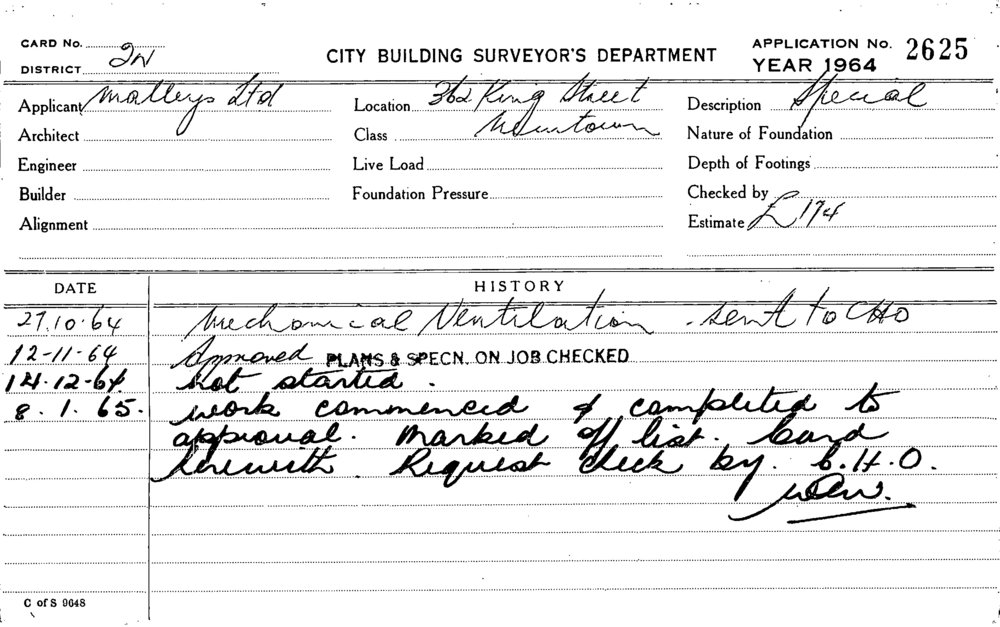 CARD No.
DISTRICT 2N
CITY BUILDING SURVEYOR'S DEPARTMENT
APPLICATION No. 2625
YEAR 1964
Applicant Matleys Ltd
Location 362 King Street
Description Special
Architect
Class Newtown
Nature of Foundation
Engineer
Live Load
Depth of Footings
Builder
Foundation Pressure
Checked by
Alignment
Estimate £174
DATE HISTORY
27.10.64 Mechanical Ventilation - sent to CHO
12-11-64 Approved PLANS & SPECN. ON JOB CHECKED
14.12-64 not started.
8.1.65. work commenced & completed to
approval. Marked off list. Card
herewith. Request check by. C.H.O.
C of S 9648